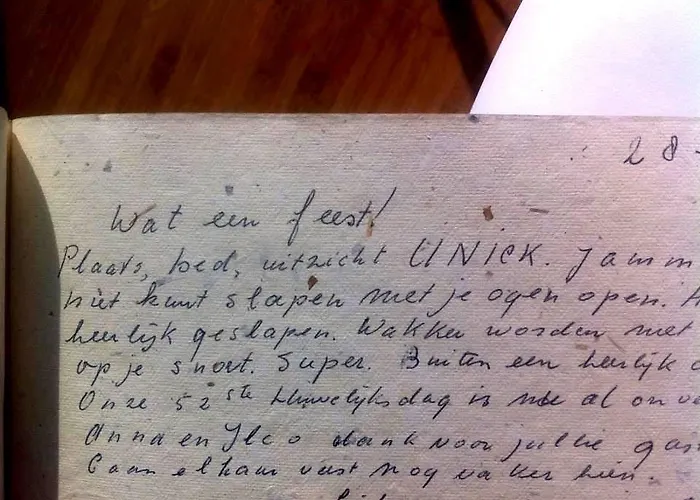 28-
Wat een feest!
Plaats, bed, uitzicht UNIEK. Jamm
niet kunt slapen met je ogen open. H
heerlijk geslapen. Wakker worden met
op je snoet. Super. Buiten een heerlijk
Onze 52ste Huwelijksdag is nu al onve
Anna en Ilco dank voor jullie gas
vast nog vaker hier.